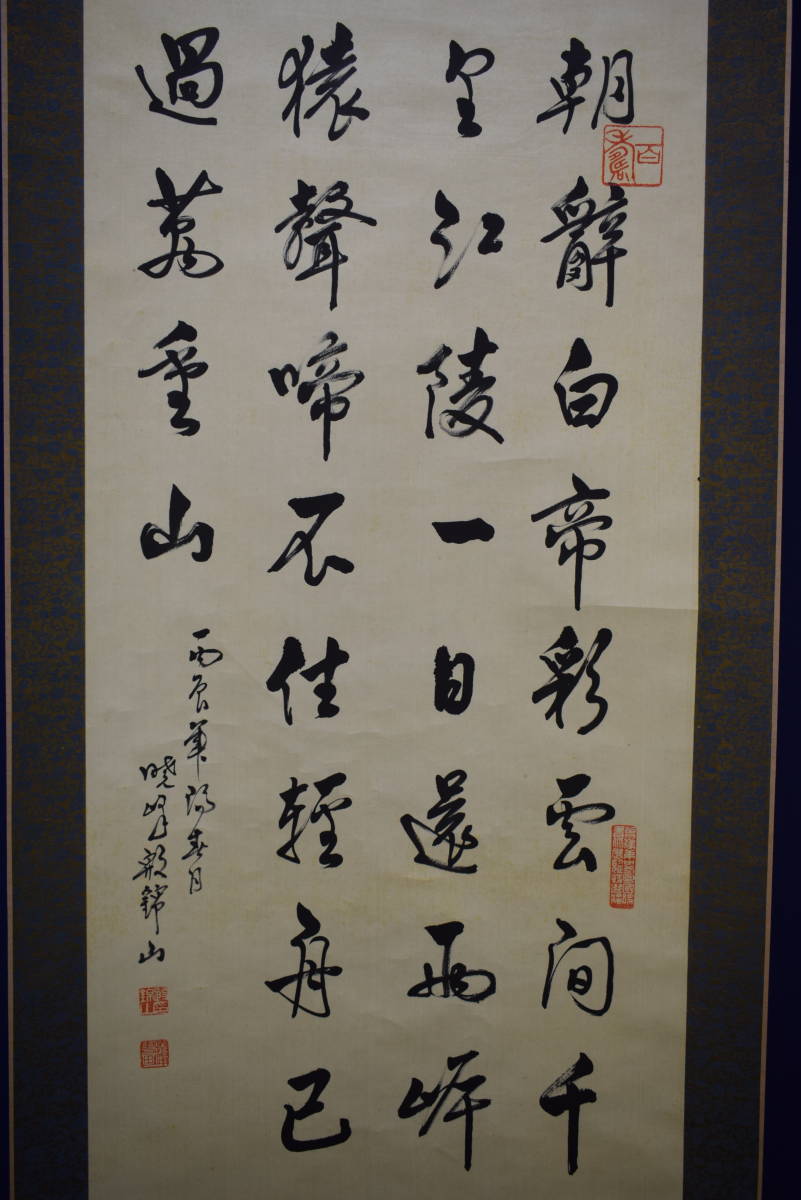 朝辭白帝彩雲间千
里江陵一日還兩岸
猿聲啼不住輕舟已
過萬重山
丙辰年陽春月
曉峰 錦山